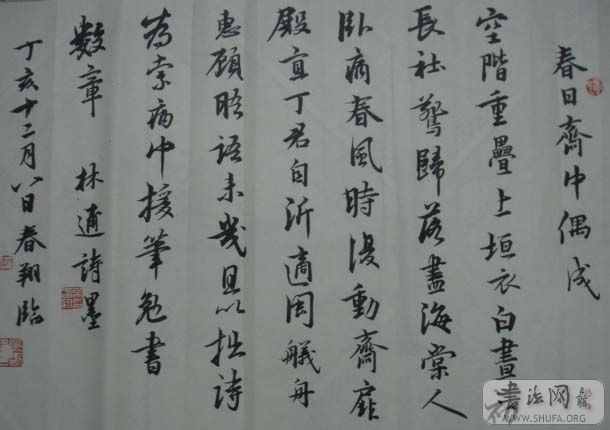 春日齋中偶成
空階重疊上垣衣白晝初
長社鷰歸落盡海棠人
臥病春風時復動齋扉
殿直丁君自沂適閩艤舟
惠顧晤語未幾且以拙詩
為索病中援筆勉書
數章 林逋詩墨
丁亥十二月八日春翔臨
書法网
WWW.SHUFA.ORG